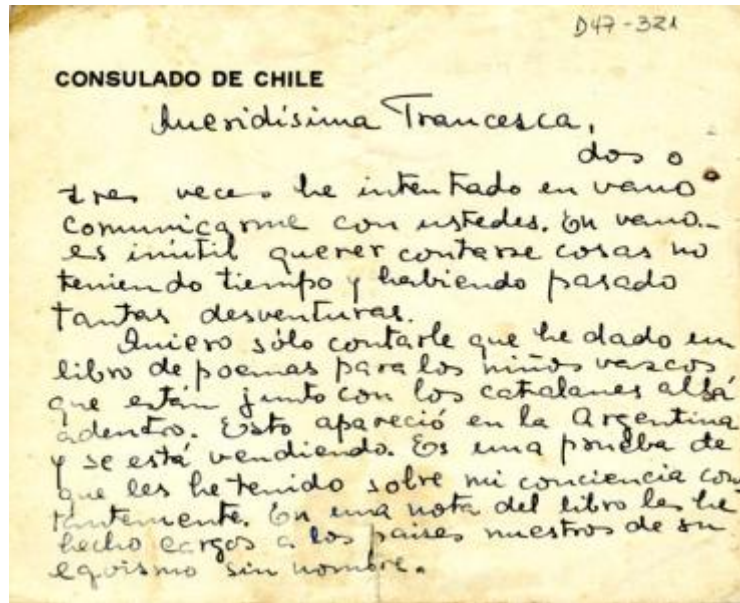 D47-321
CONSULADO DE CHILE
Queridísima Francesca,
dos o
tres veces he intentado en vano
comunicarme con ustedes. En vano.
es inútil querer contarse cosas no
teniendo tiempo y habiendo pasado
tantas desventuras.
Quiero sólo contarle que he dado un
libro de poemas para los niños vascos
que están junto con los catalanes allá
adentro. Esto apareció en la Argentina
y se está vendiendo. Es una prueba de
que les he tenido sobre mi conciencia cons
tantemente. En una nota del libro les he
hecho cargos a los países nuestros de su
egoísmo sin nombre.